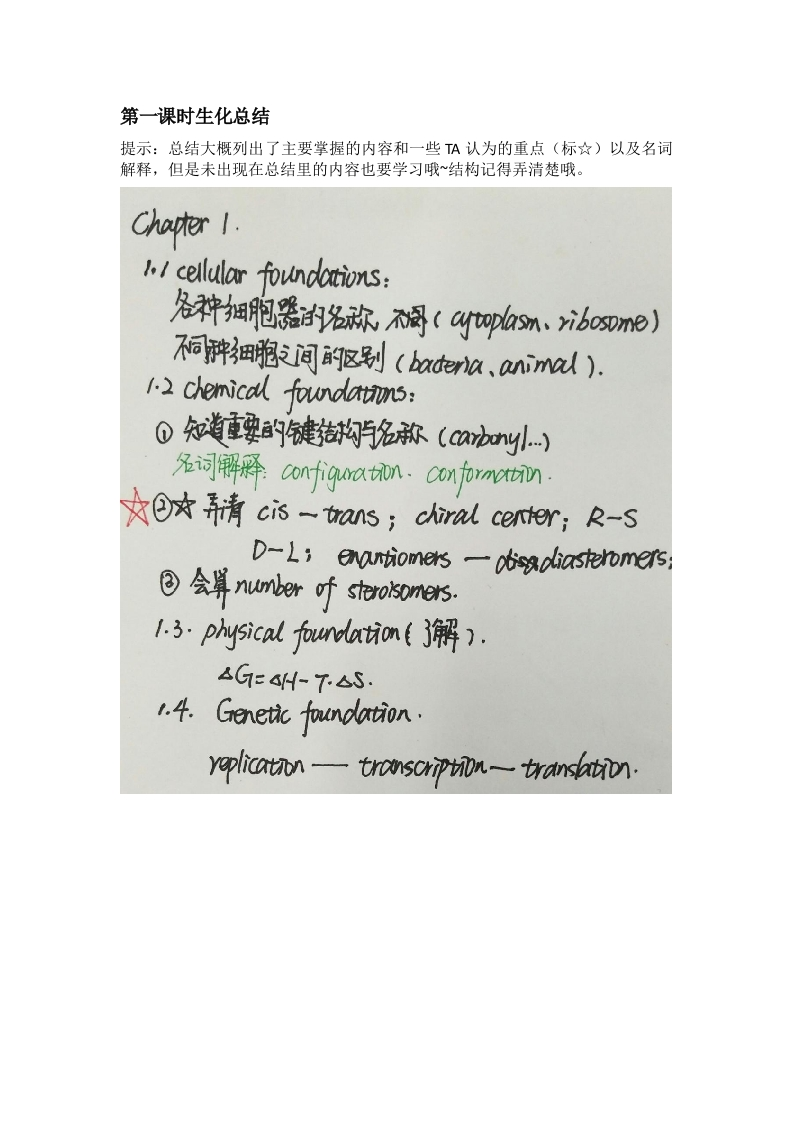 第一课时生化总结
提示：总结大概列出了主要掌握的内容和一些 TA 认为的重点（标☆）以及名词
解释，但是未出现在总结里的内容也要学习哦~结构记得弄清楚哦。
Chapter 1.
1.1 cellular foundations：
各种细胞器的名称、不同（cytoplasm、ribosome）
不同种细胞之间的区别（bacteria、animal）.
1.2 chemical foundations：
① 知道重要的键结构与名称（carbonyl...）
名词解释：configuration. conformation.
②☆ 弄清 cis — trans；chiral center；R-S
D-L；enantiomers — diasteromers；
③ 会算 number of steroisomers.
1.3. physical foundation（了解）.
△G=△H-T.△S.
1.4. Genetic foundation.
replication — transcription — translation.